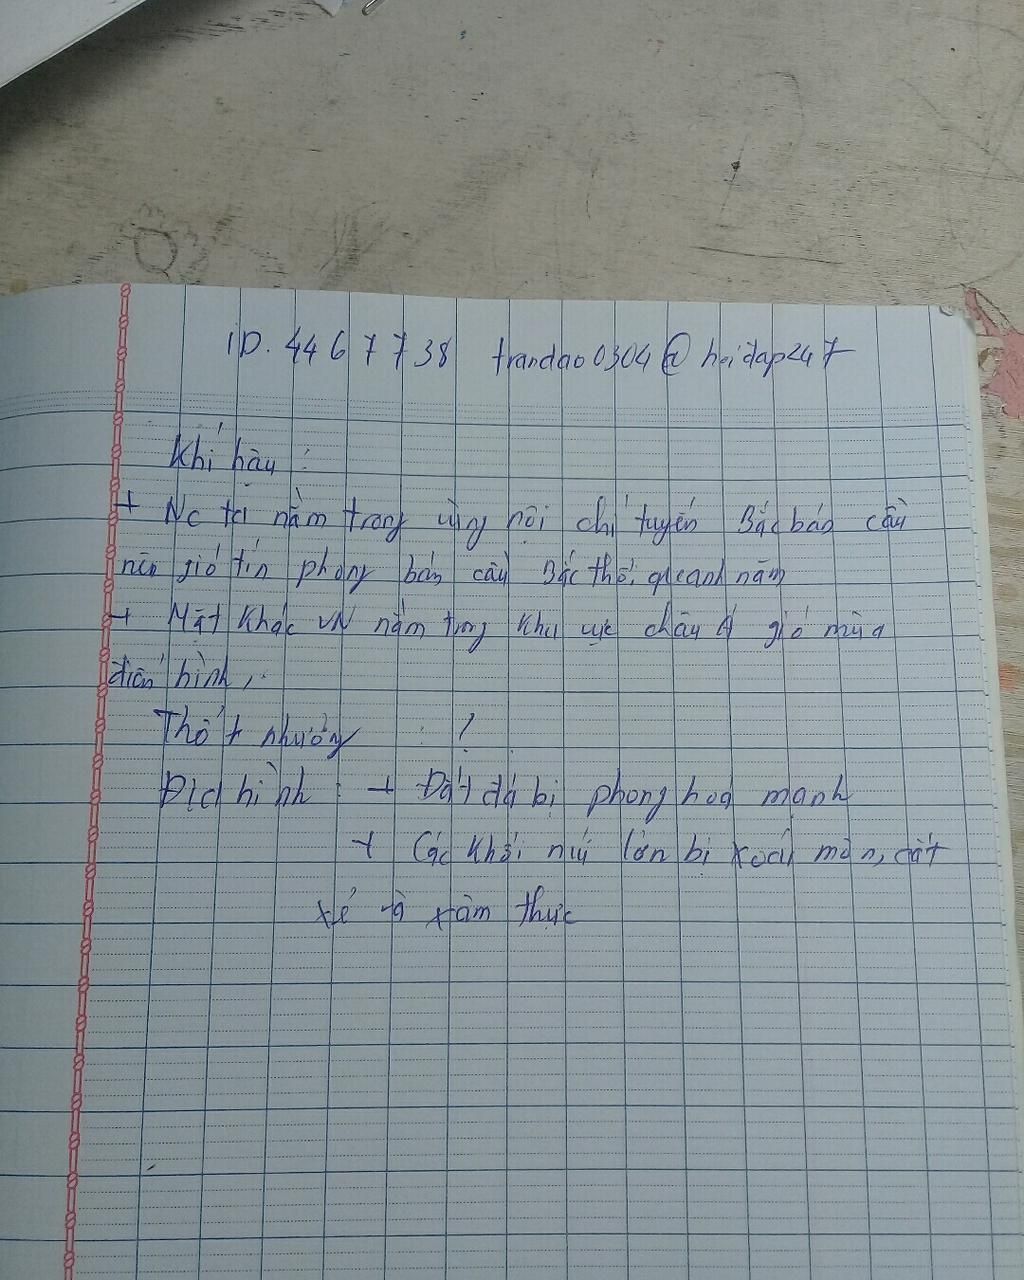 ID. 4467738 trandao0304@hoidap247
Khí hậu :
+ Nc ta nằm trong vùng nội chí tuyến Bắc bán cầu
nên gió tín phong bán cầu Bắc thổi quanh năm
+ Mặt khác VN nằm trong khu vực châu Á gió mùa
điển hình,
Thổ nhưỡng : ?
Địa hình : + Đất đá bị phong hoá mạnh
+ Các khối núi lớn bị xoáy mòn, cắt
xẻ và xâm thực